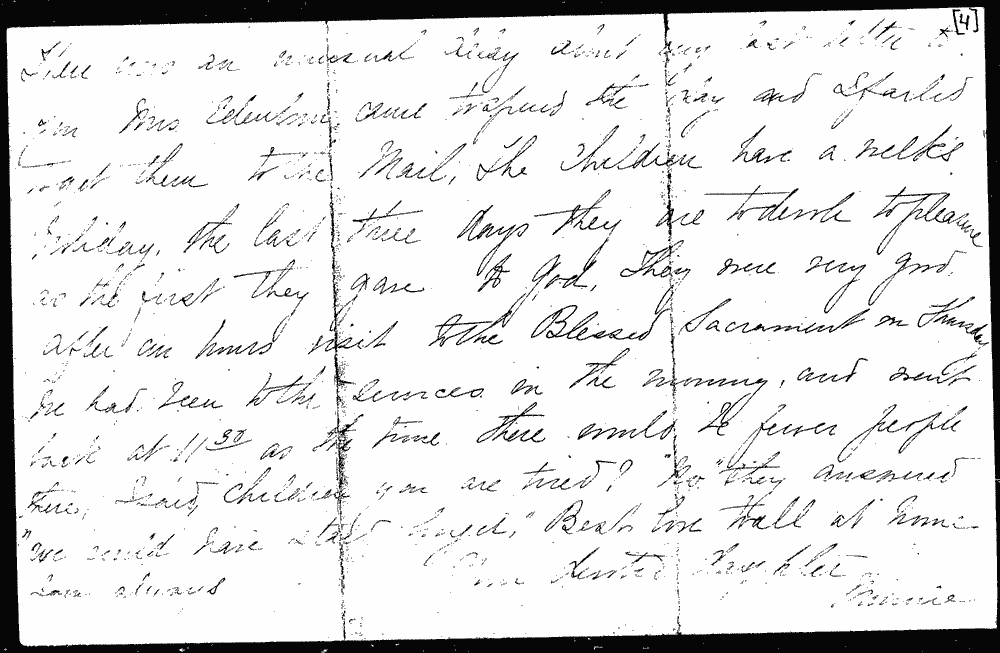 [4]
There was an unusual delay about my last letter to
you Mrs. came to spend the day and I failed
to get them to the Mail, The Children have a week's
Holiday. the last three days they are to devote to pleasure
as the first they gave to God, They were very good,
After an hours visit to the Blessed Sacrament on Thursday
We had been to the services in the morning, and went
back at 11 30 as the time there would be fewer people
there, I said, Children you are tired? "No" they answered
"we could have staid longer," Best love to all at home
I am always Your devoted daughter
Minnie